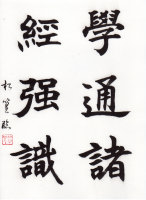 學通諸
經强識